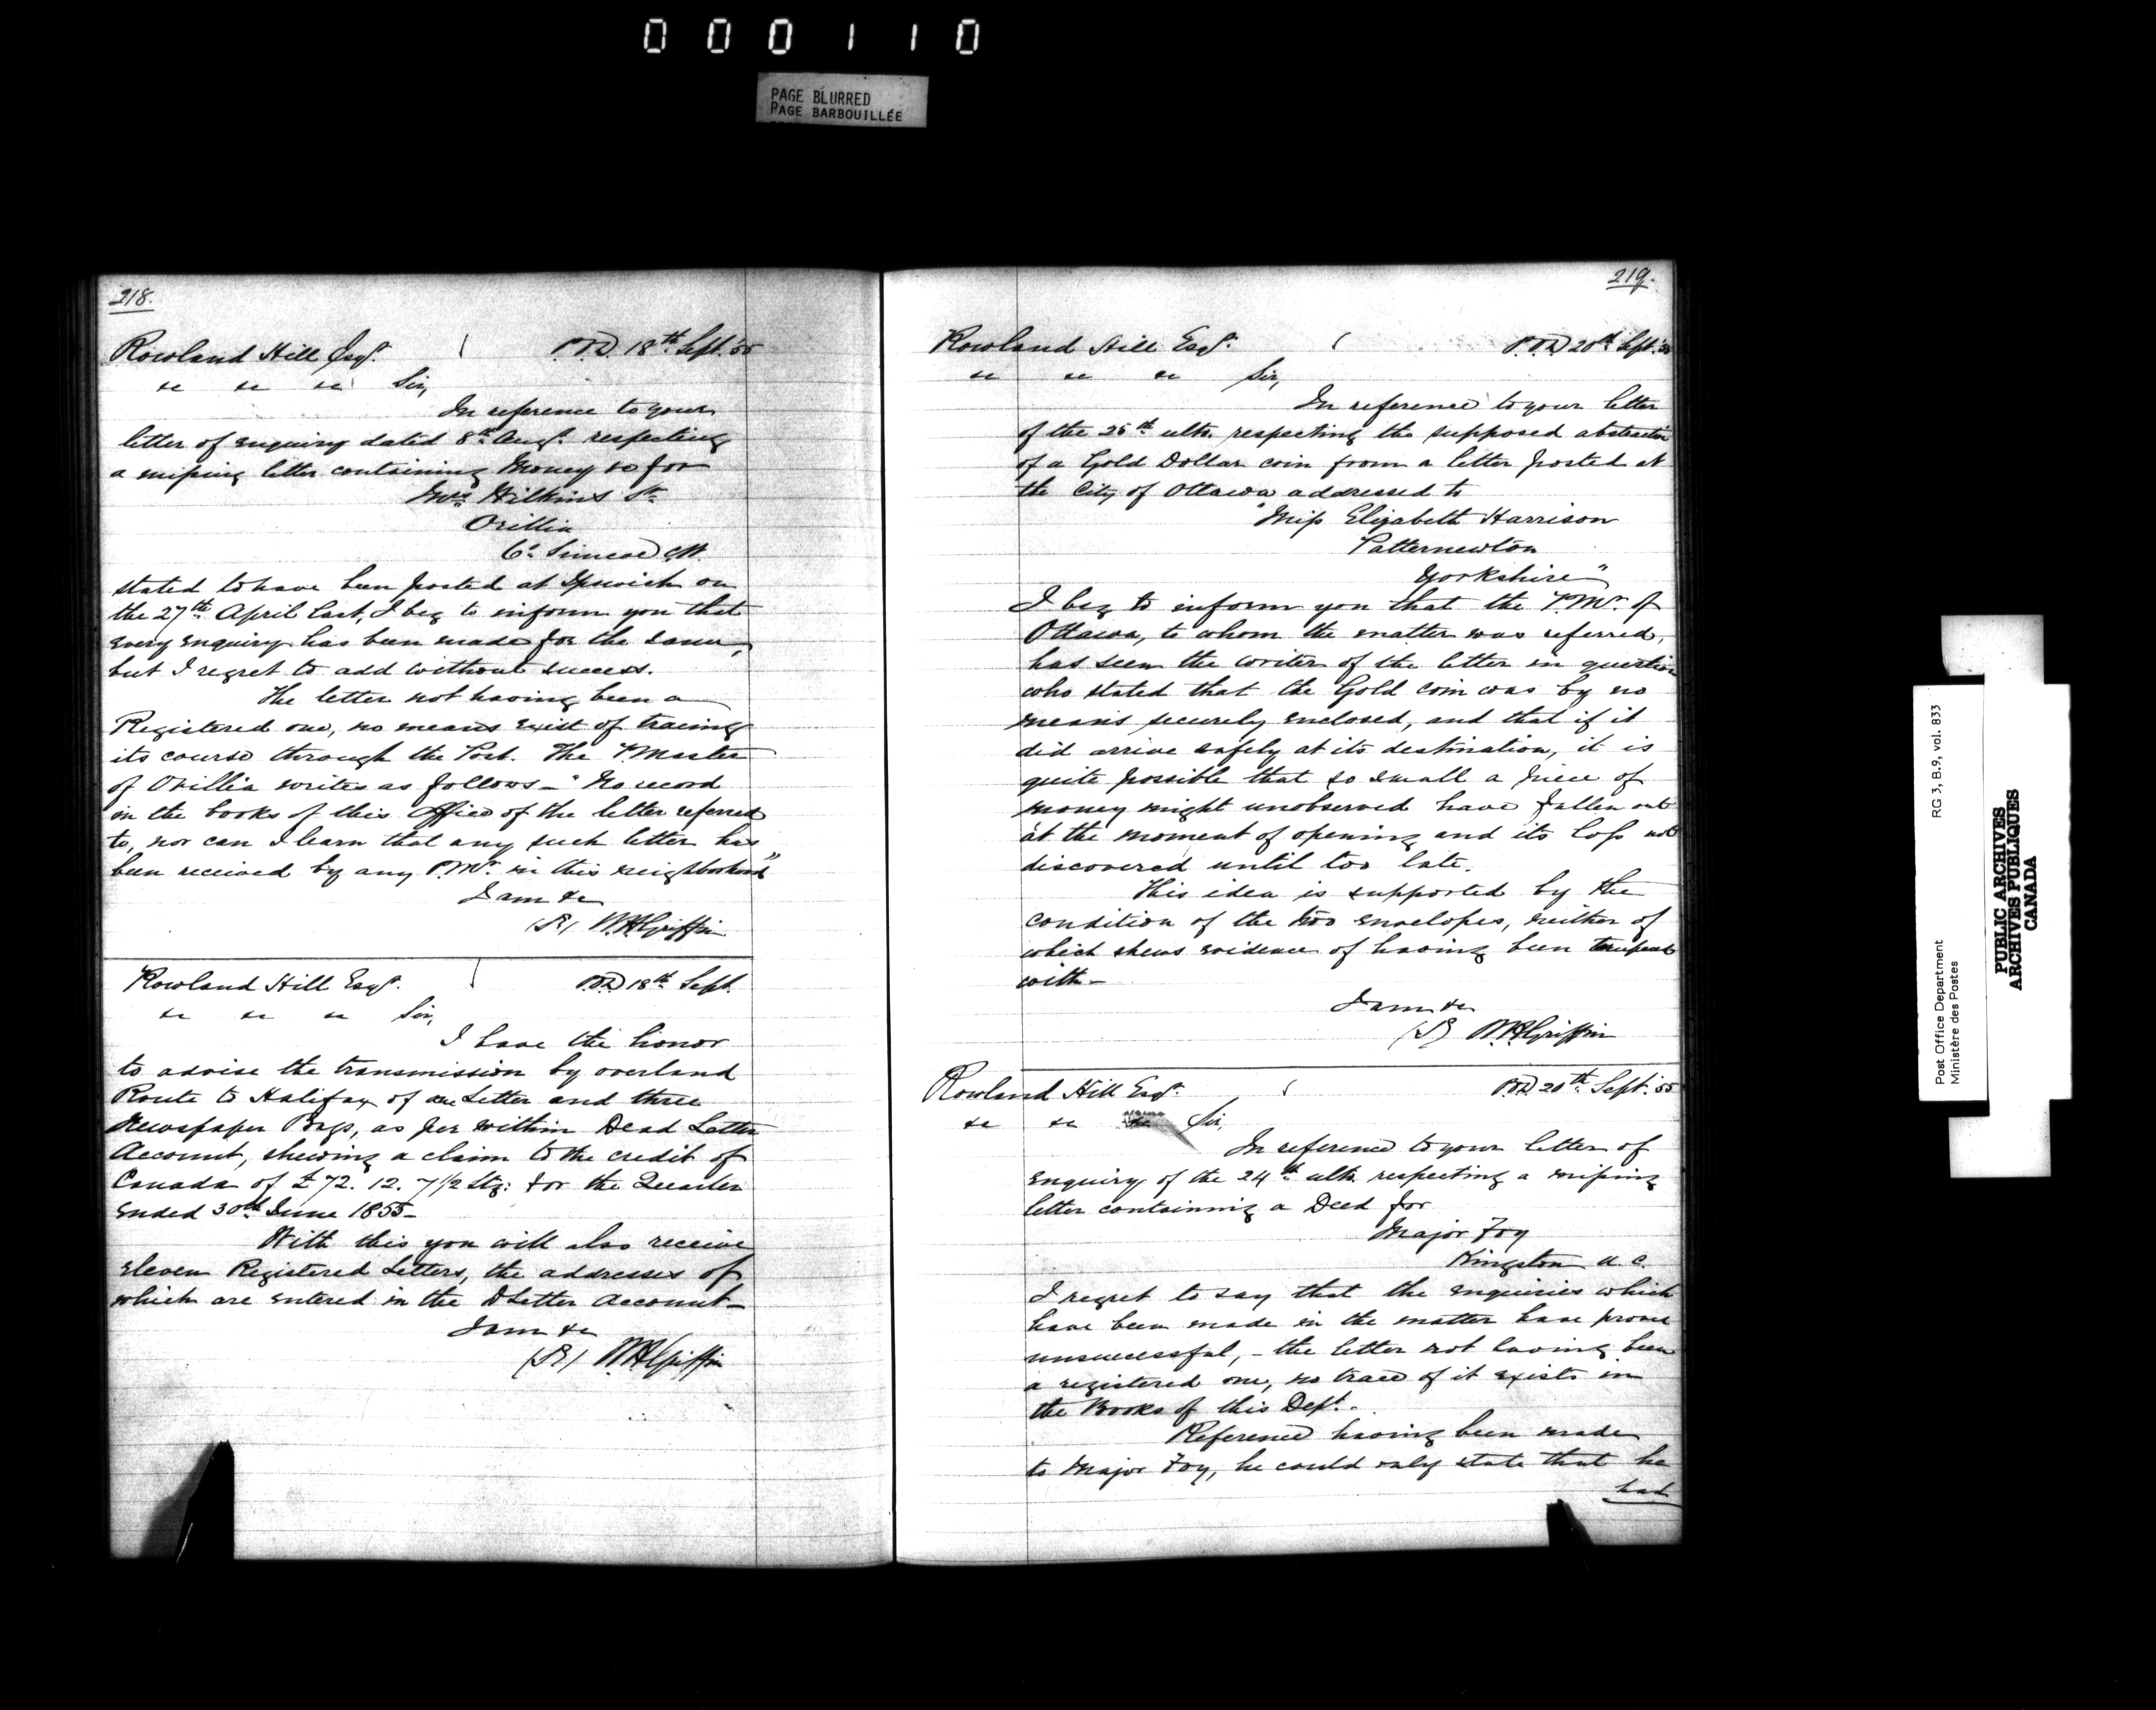 000110
PAGE BLURRED
PAGE BARBOUILLÉE
218.
Rowland Hill Esqr. P.O.D. 18th Sept. 55
&c &c &c Sir,
In reference to your
letter of enquiry dated 8th Augt. respecting
a missing letter containing Money &c for
Mrs Wilkins Sr
Orillia
Co. Simcoe C.W.
stated to have been posted at Ipswich on
the 27th April last, I beg to inform you that
every enquiry has been made for the same,
but I regret to add without success.
The letter not having been a
Registered one, no means exist of tracing
its course through the Post. The P. Master
of Orillia writes as follows - "No record
in the books of this Office of the letter referred
to, nor can I learn that any such letter has
been received by any P.Mr. in this neighborhood"
I am &c
(S.) W.H. Griffin
Rowland Hill Esqr. P.O.D. 18th Sept.
&c &c &c Sir,
I have the honor
to advise the transmission by overland
Route to Halifax of one Letter and three
Newspaper Bags, as per within Dead Letter
Account, shewing a claim to the credit of
Canada of £72. 12. 7 1/2 Stg: for the Quarter
ended 30th June 1855 -
With this you will also receive
eleven Registered Letters, the addresses of
which are entered in the D Letter Account -
I am &c
(S.) W.H. Griffin
219.
Rowland Hill Esqr. P.O.D. 20th Sept. 55
&c &c &c Sir,
In reference to your letter
of the 25th ulto. respecting the supposed abstraction
of a Gold Dollar coin from a letter posted at
the City of Ottawa addressed to
"Miss Elizabeth Harrison
Patternewton
Yorkshire"
I beg to inform you that the P.Mr. of
Ottawa, to whom the matter was referred,
has seen the writer of the letter in question
who stated that the Gold coin was by no
means securely enclosed, and that if it
did arrive safely at its destination, it is
quite possible that so small a piece of
money might unobserved have fallen out
at the moment of opening and its loss not
discovered until too late.
This idea is supported by the
condition of the two envelopes, neither of
which shews evidence of having been tampered
with -
I am &c
(S) W.H. Griffin
Rowland Hill Esqr. P.O.D. 20th Sept. 55
&c &c &c Sir,
In reference to your letter of
enquiry of the 24th ulto. respecting a missing
letter containing a Deed for
Major Foy
Kingston U.C.
I regret to say that the enquiries which
have been made in the matter have proved
unsuccessful, - the letter not having been
a registered one, no trace of it exists in
the Books of this Dept. -
Reference having been made
to Major Foy, he could only state that he
had
RG 3, B.9, vol. 833
Post Office Department
Ministère des Postes
PUBLIC ARCHIVES
ARCHIVES PUBLIQUES
CANADA